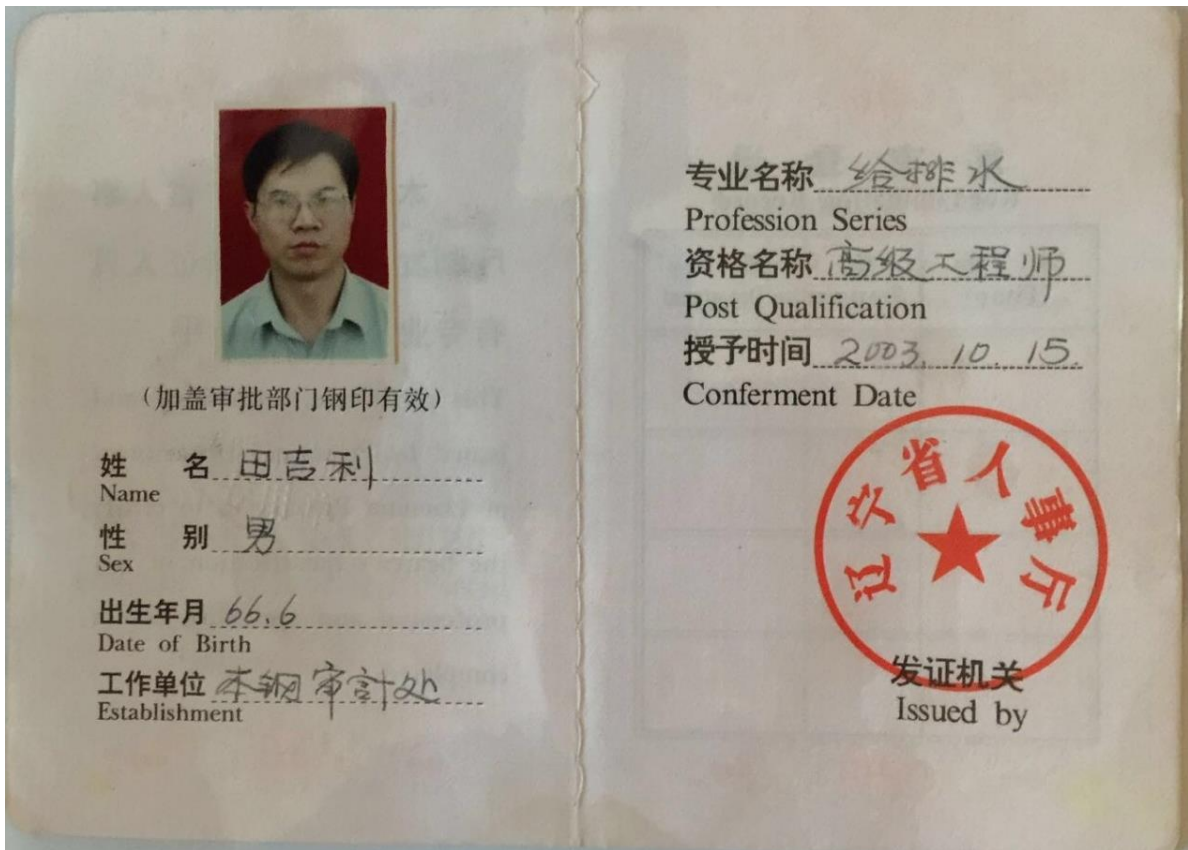 (加盖审批部门钢印有效)
姓 名 田吉利
Name
性 别 男
Sex
出生年月 66.6
Date of Birth
工作单位 本钢审计处
Establishment
专业名称 给排水
Profession Series
资格名称 高级工程师
Post Qualification
授予时间 2003.10.15.
Conferment Date
辽宁省人事厅
发证机关
Issued by